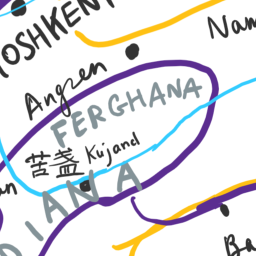 TOSHKENT
Nam
Angren
FERGHANA
苦盏 Kujand
DIANA
Ba